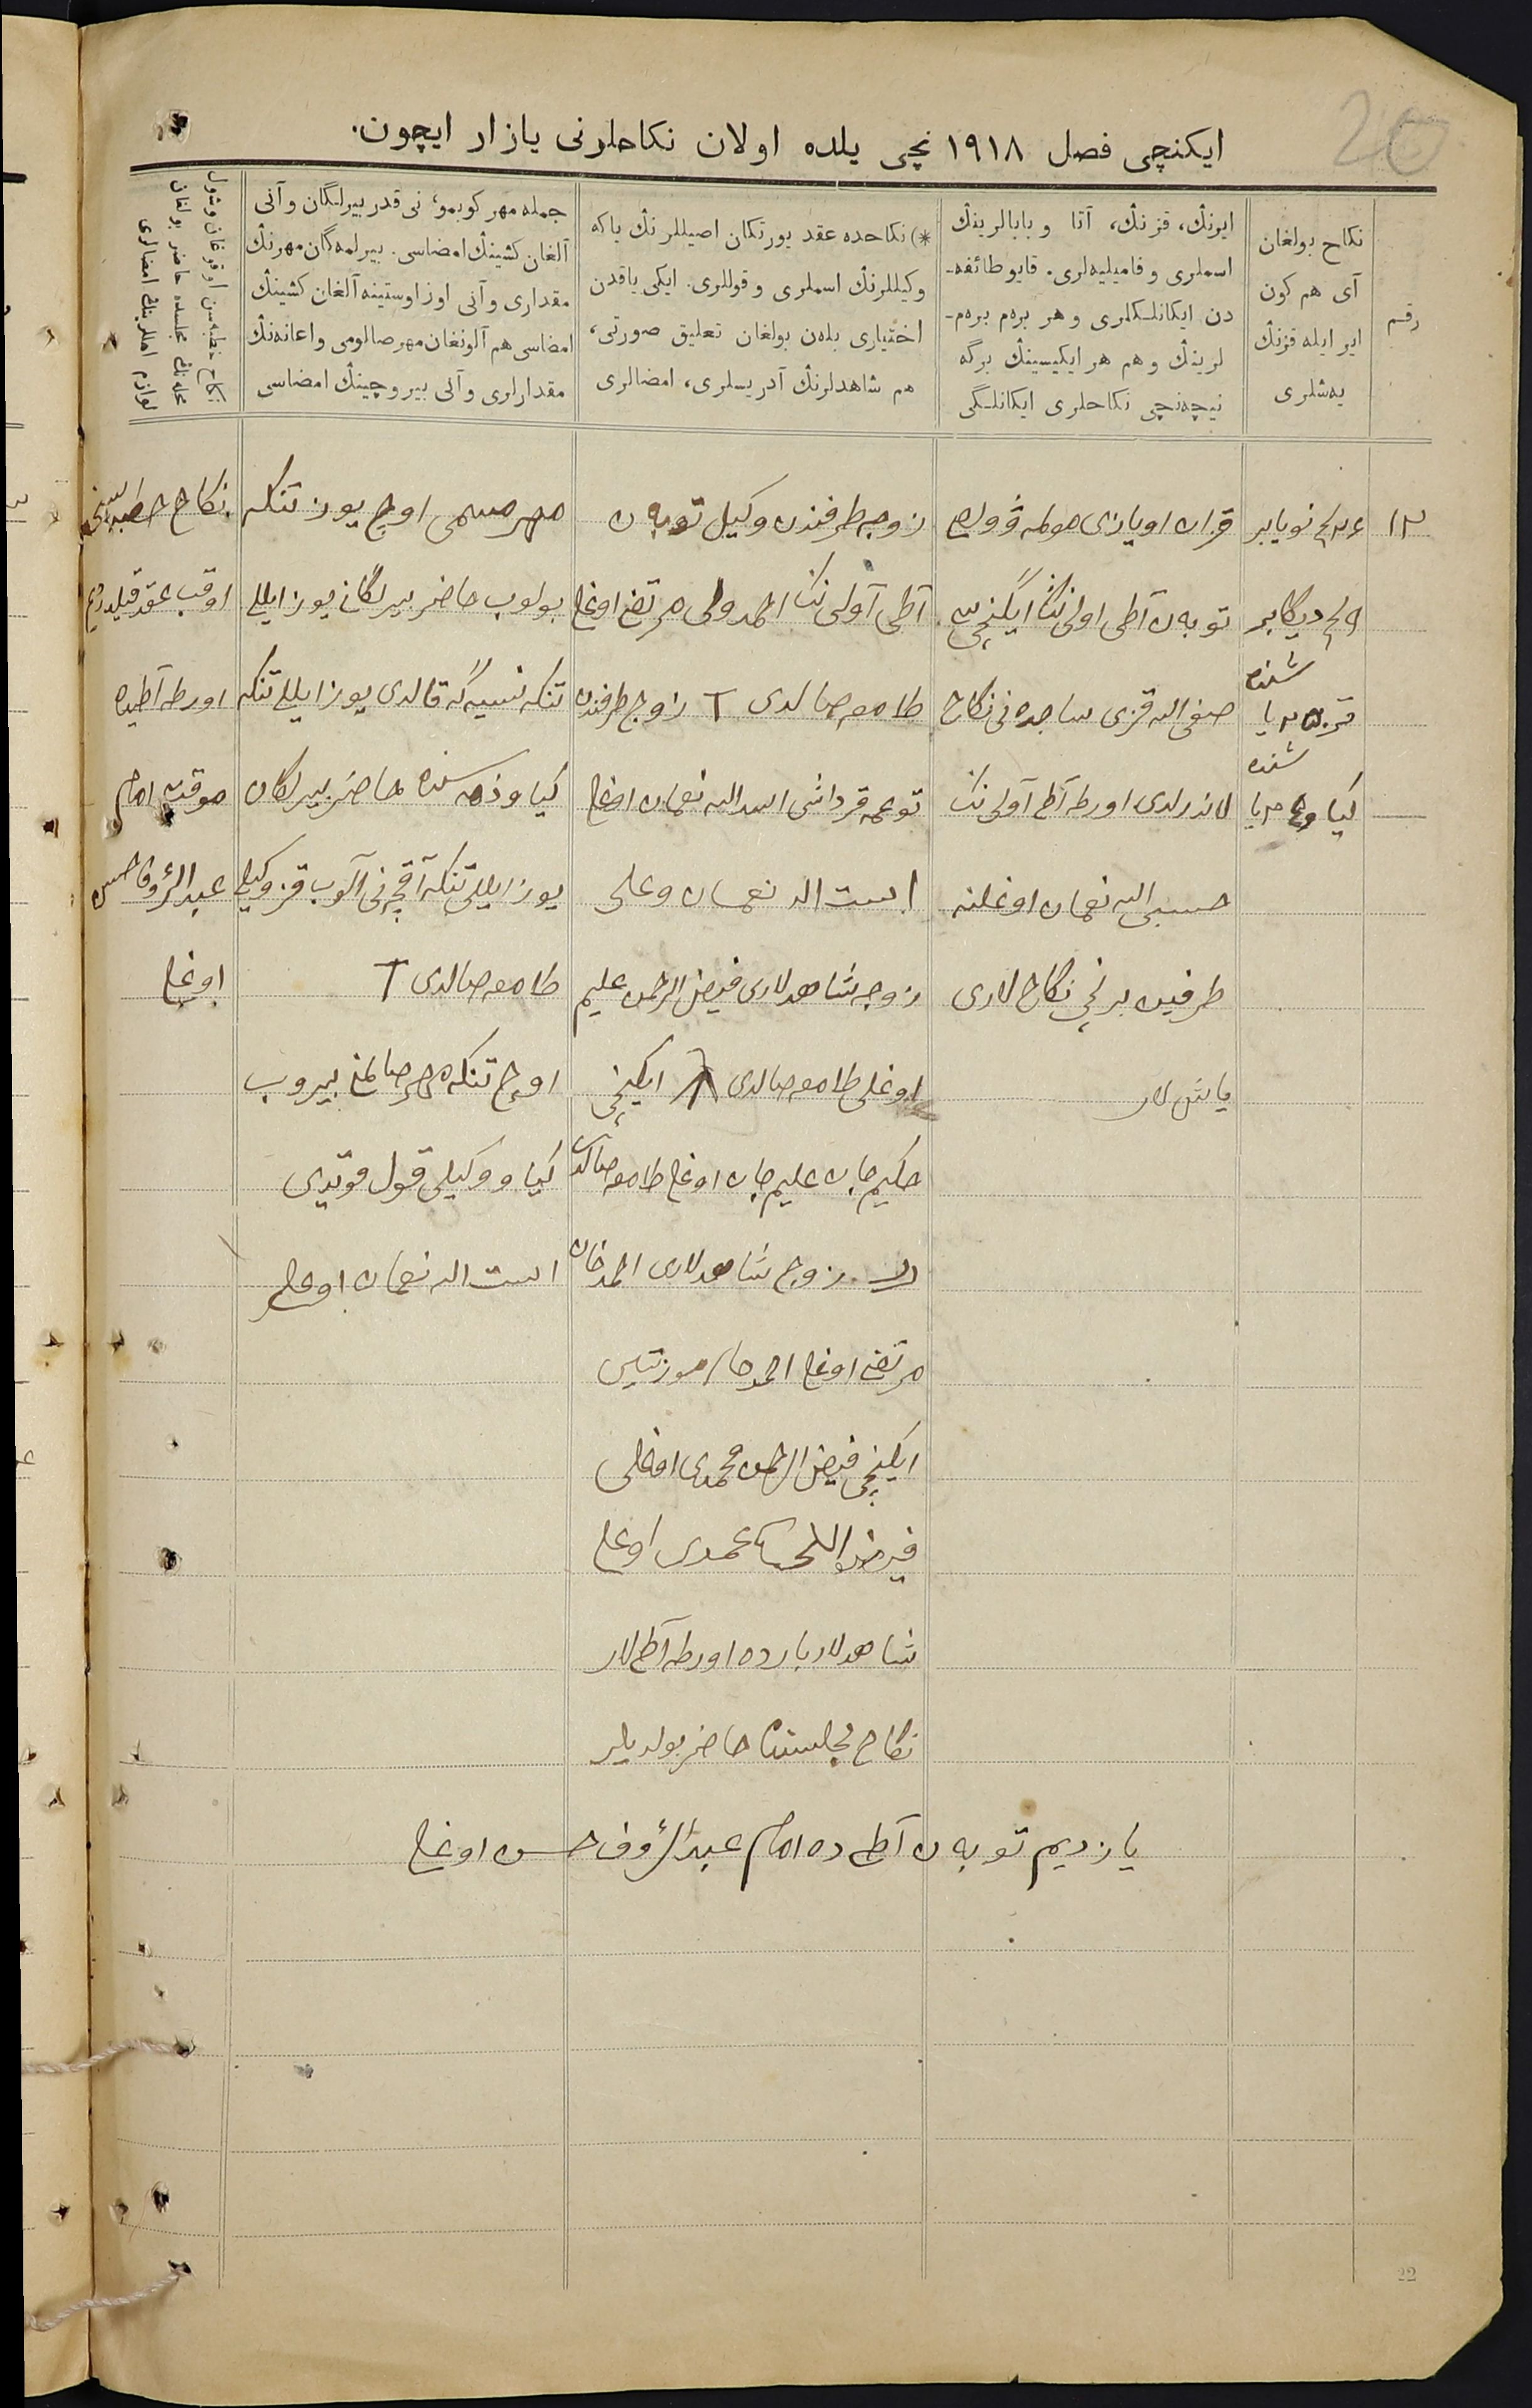 20
ایكنچی فصل ١٩١٨ نچی یلده اولان نكاحلرنی یازار ایچون.
رقم
نكاح بولغان
آی هم كون
ایر ایله قزنڭ
یەشلری
ایرنڭ، قزنڭ، آتا و بابالرینڭ
اسملری و فامیلیەلری. قایو طائفه-
دن ایكانلكلری و هر برەم برەم-
لرینڭ و هم هر ایكیسینڭ برگه
نیچەنچی نكاحلری ایكانلگی
*) نكاحده عقد یورتكان اصیللرنڭ یاكه
وكیللرنڭ اسملری و قوللری. ایكی یاقدن
اختیاری بلەن بولغان تعلیق صورتی،
هم شاهدلرنڭ آدریسلری، امضالری
جمله مهر كوبمو، نی قدر بیرلگان و آنی
آلغان كشینڭ امضاسی. بیرلمەگان مهرنڭ
مقداری و آنی اوز اوستینه آلغان كشینڭ
امضاسی هم آلونغان مهر صالومی و اعانەنڭ
مقدارلری و آنی بیروچینڭ امضاسی
نكاح خطبەسن اوقوغان وشول
محلەنڭ مجلسده حاضر بولغان
لوازم اهللرینڭ امضالری
١٣
نویابر
دیكابر
شنده
قز یا
شنده
كیاو یا
قزان اویازی
توبەن آطی اولی نڭ ایكنچی
صفی الله قزی ساجده نی نكاح
لاندرلدی اورطه آطی آولی نڭ
حسبی الله نعمان اوغلنه
طرفین برنچی نكاح لاری
یاش لار
زوجه طرفندن وكیل توبەن
آطی آولی نڭ احمدولی مرتضی اوغلی
طامغه صالدی T زوج طرفندن
توغمه قرداشی اسدالله نعمان اوغلی
است الله نعمان وعلی
زوجه شاهدلاری فیض الرحمن علیم
اوغلی طامغه صالدی ایكنچی
حكیم جان علیم جان اوغلی طامغه صالدی
زوج شاهدلاری احمدخان
مرتضی اوغلی
ایكنچی فیض الرحمن محمدی اوغلی
شاهدلار بارده اورطه آطی لار
نكاح مجلسنده حاضر بولدیلر
مهر مسمی اوچ یوز تنكه
بولوب حاضر بیرلگانی یوز ایللی
تنكه نسیەگه قالدی یوز ایللی تنكه
كیاو ذمەسنده حاضر بیرلگان
یوز ایللی تنكه آقچەنی آلوب قز وكیلی
طامغه صالدی T
اوچ تنكه مهر صالمی بیروب
كیاو وكیلی قول قویدی
است الله نعمان اوغلی
نكاح خطبەسنی
اوقب عقد قیلدردیم
اورطه آطیده
موقت امام
عبدالرؤف حسن
اوغلی
یازدیم توبەن آطی ده امام عبدالرؤف حسن اوغلی
22